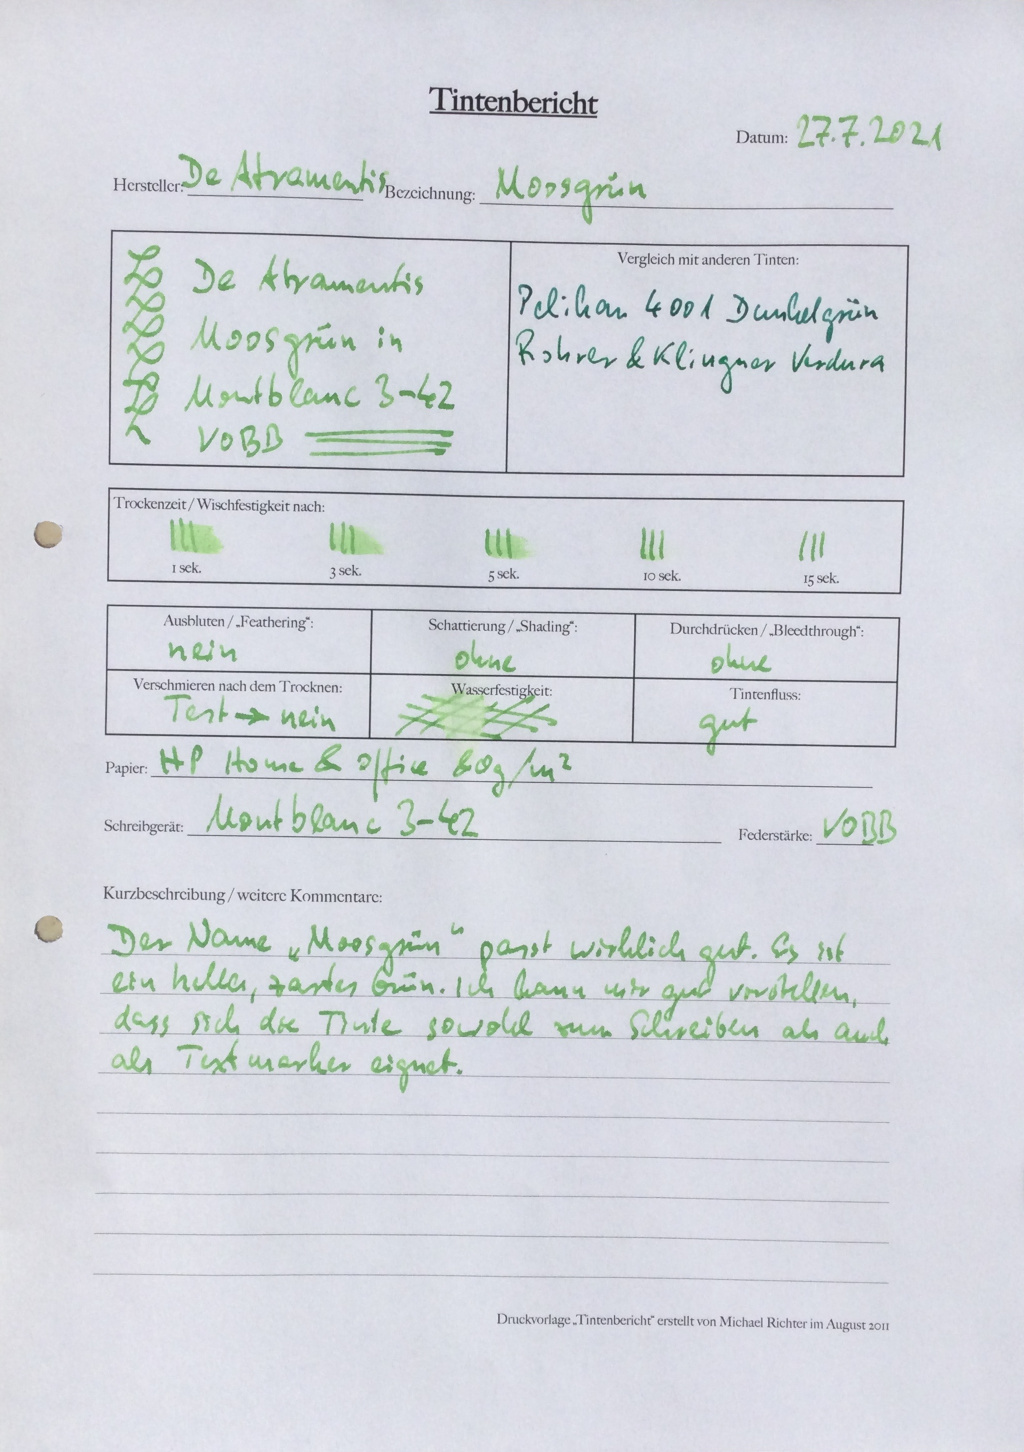 Tintenbericht
Datum: 27.7.2021
Hersteller: De Atramentis Bezeichnung: Moosgrün
De Atramentis
Moosgrün in
Montblanc 3-42
VOBB
Vergleich mit anderen Tinten:
Pelikan 4001 Dunkelgrün
Rohrer & Klingner Verdura
Trockenzeit / Wischfestigkeit nach:
1 sek. 3 sek. 5 sek. 10 sek. 15 sek.
Ausbluten / „Feathering“: Schattierung / „Shading“: Durchdrücken / „Bleedthrough“:
nein ohne ohne
Verschmieren nach dem Trocknen: Wasserfestigkeit: Tintenfluss:
Test → nein gut
Papier: HP Home & Office 80g/m²
Schreibgerät: Montblanc 3-42 Federstärke: VOBB
Kurzbeschreibung / weitere Kommentare:
Der Name „Moosgrün“ passt wirklich gut. Es ist
ein helles, zartes Grün. Ich kann mir gut vorstellen,
dass sich die Tinte sowohl zum Schreiben als auch
als Textmarker eignet.
Druckvorlage „Tintenbericht“ erstellt von Michael Richter im August 2011